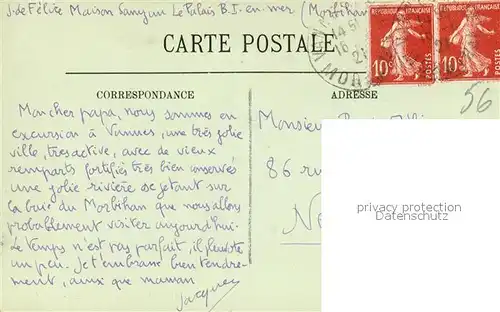 J. de Félice Maison Le Palais B.I. en-mer (Morbihan
CARTE POSTALE
RÉPUBLIQUE FRANÇAISE
10c POSTES
RÉPUBLIQUE FRANÇAISE
10c POSTES
14
16
21
MOR
CORRESPONDANCE
ADRESSE
56
Mon cher papa, nous sommes en
excursion à Vannes, une très jolie
ville, très active, avec de vieux
remparts fortifiés très bien conservés
une jolie rivière se jetant sur
la baie du Morbihan que nous allons
probablement visiter aujourd'hui.
Le temps n'est pas parfait, il pleuvote
un peu. Je t'embrasse bien tendre-
ment, ainsi que maman.
Jacques
Monsieur
86 ru
Ne
privacy protection
Datenschutz